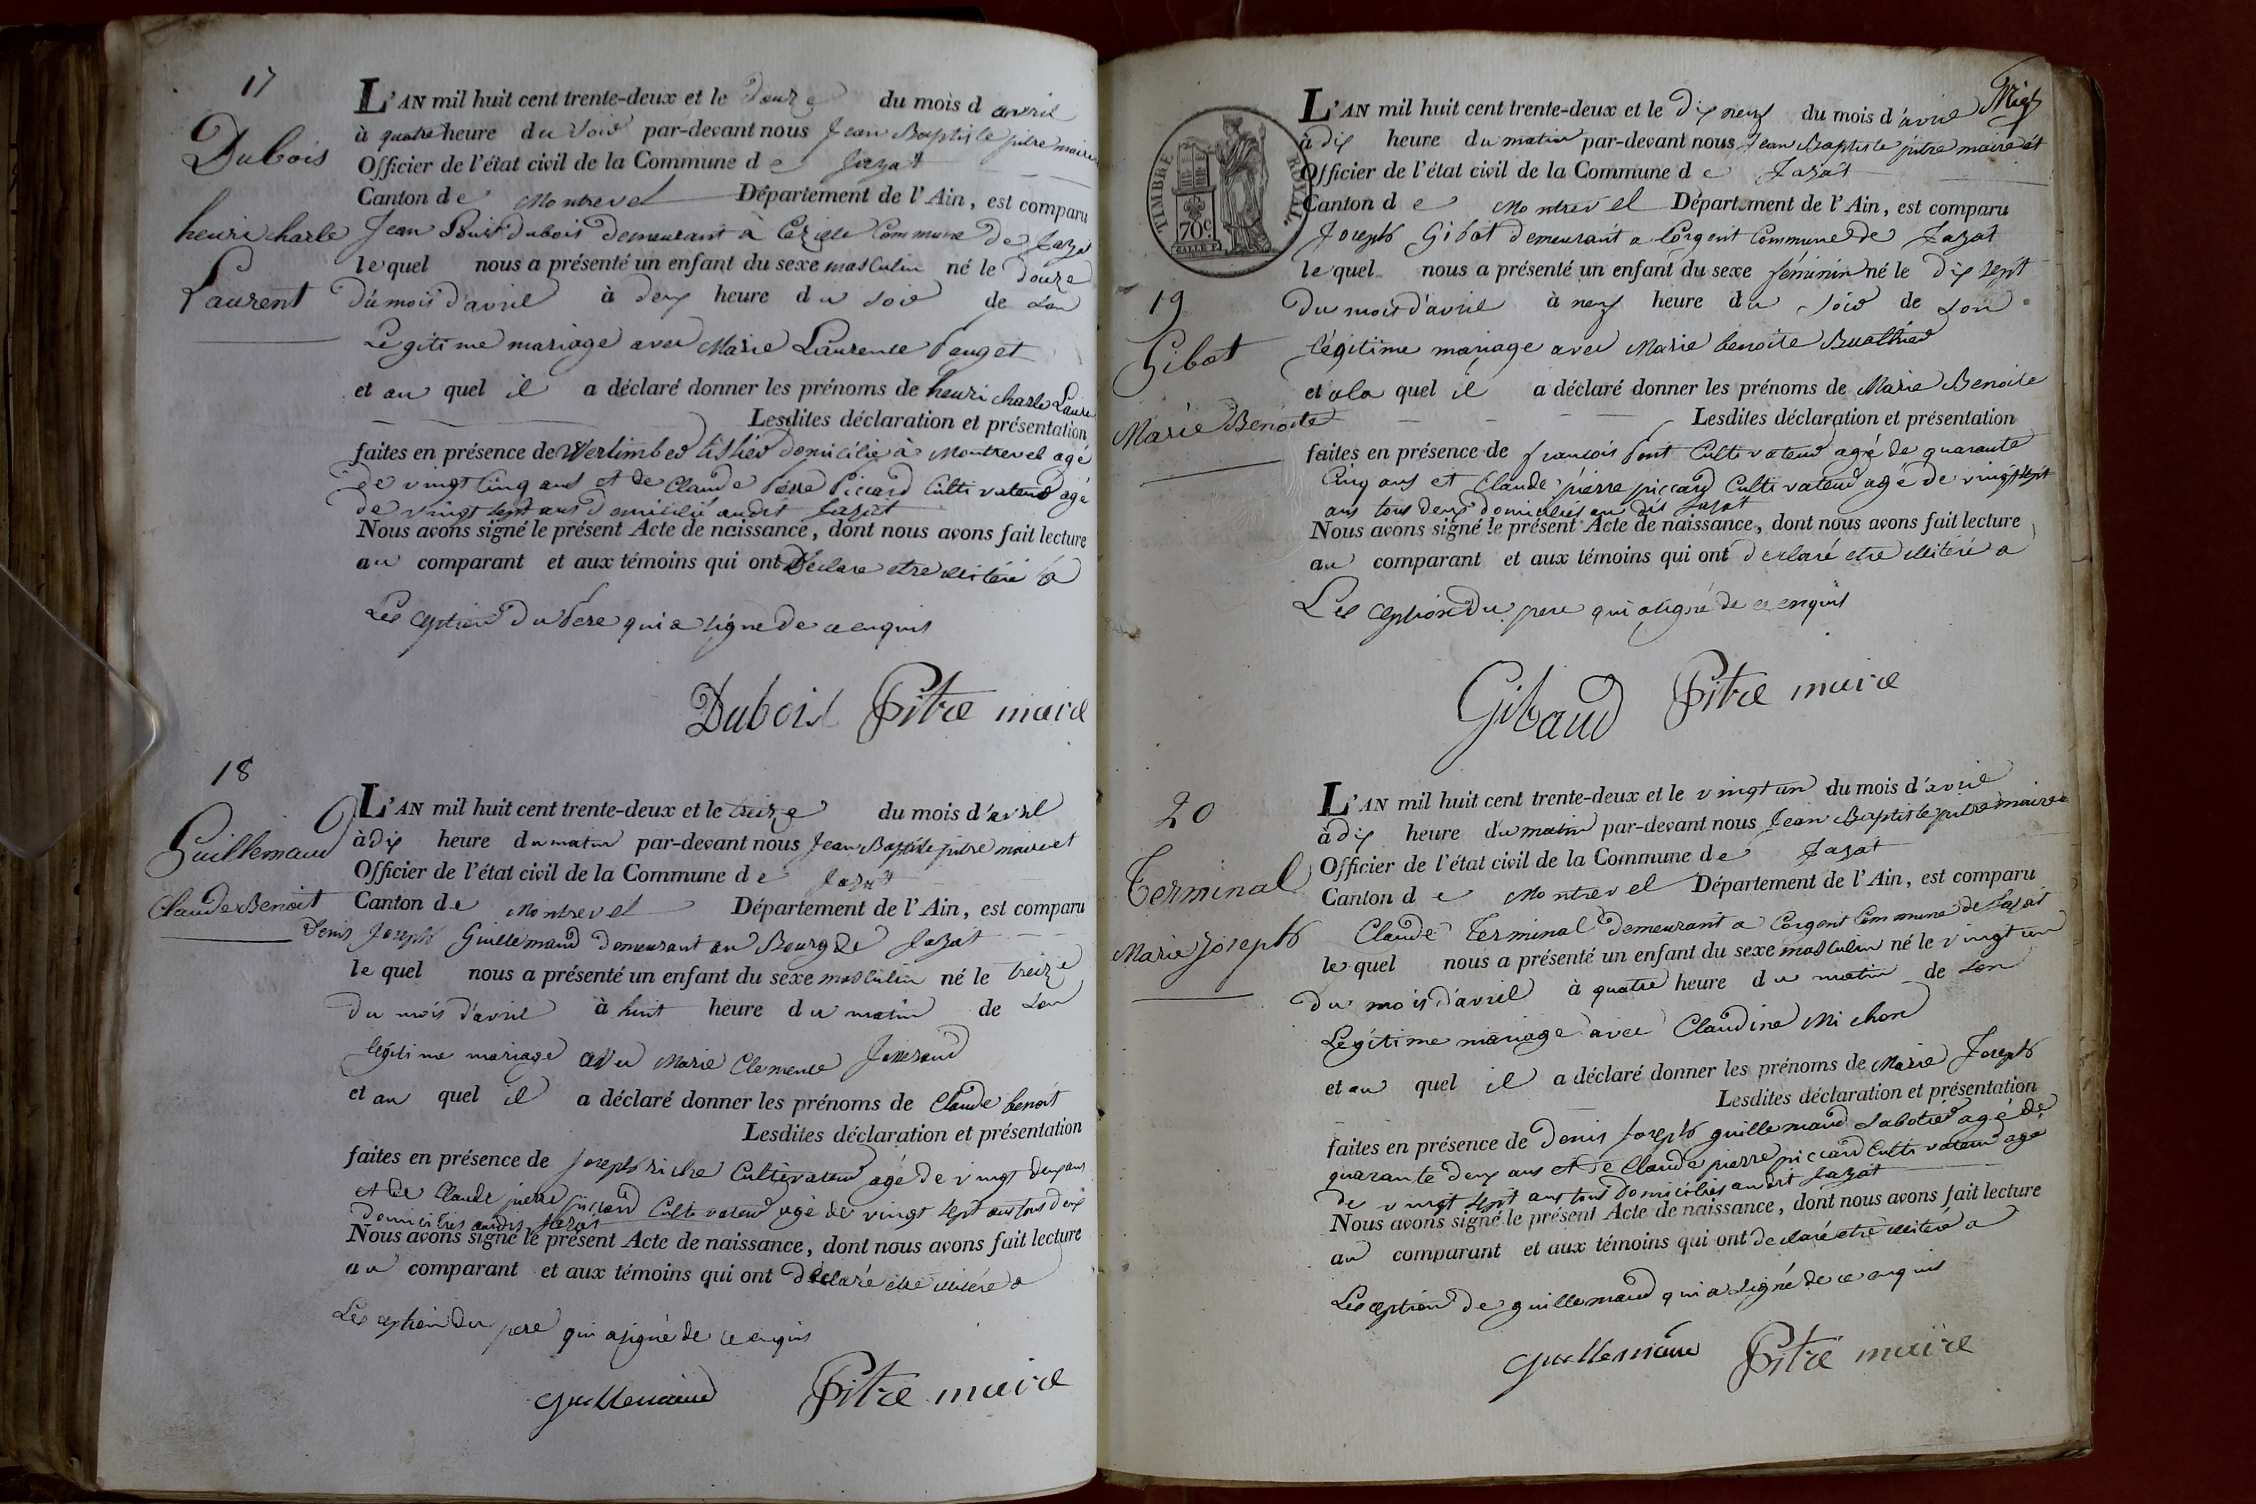 17
Dubois
henri charle
Laurent
L'AN mil huit cent trente-deux et le douze du mois d avril
à quatre heure du soir par-devant nous Jean Baptiste pitre maire
Officier de l'état civil de la Commune de Jazat
Canton de Montrevel Département de l'Ain, est comparu
Jean Dubois demeurant à Commune de Jaza
le quel nous a présenté un enfant du sexe masculin né le douze
du mois d'avril à deux heure du soir de son
Légitime mariage avec Marie Laurence
et au quel il a déclaré donner les prénoms de henri charle Laure
Lesdites déclaration et présentation
faites en présence de domicilié à Montrevel agé
de vingt cinq ans et de Claude Piccard Cultivateur agé
de vingt sept ans domicilié audit Jazat
Nous avons signé le présent Acte de naissance, dont nous avons fait lecture
au comparant et aux témoins qui ont Déclaré etre illitéré a
Lesception du Pere qui a signé de ce enquis
Dubois Pitre maire
18
Guillemaud
Claude Benoit
L'AN mil huit cent trente-deux et le treize du mois d'avril
à dix heure du matin par-devant nous Jean Baptiste pitre maire et
Officier de l'état civil de la Commune de Jazat
Canton de Montrevel Département de l'Ain, est comparu
Denis Joseph Guillemaud demeurant au Bourg de Jazat
le quel nous a présenté un enfant du sexe masculin né le treize
du mois d'avril à huit heure du matin de son
légitime mariage avec Marie Clemence
et au quel il a déclaré donner les prénoms de Claude benoit
Lesdites déclaration et présentation
faites en présence de Joseph Cultivateur agé de vingt deux ans
et de Claude pierre piccard Cultivateur agé de vingt sept ans tous deux
domiciliés audit Jazat
Nous avons signé le présent Acte de naissance, dont nous avons fait lecture
au comparant et aux témoins qui ont déclaré etre illitéré a
Lesception du pere qui a signé de ce enquis
guillemaud Pitre maire
TIMBRE ROYAL
70c
19
Gibot
Marie Benoite
L'AN mil huit cent trente-deux et le dix neuf du mois d'avril
à dix heure du matin par-devant nous Jean Baptiste pitre maire et
Officier de l'état civil de la Commune de Jazat
Canton de Montrevel Département de l'Ain, est comparu
Joseph Gibot demeurant a Corgent Commune de Jazat
le quel nous a présenté un enfant du sexe féminin né le dix sept
du mois d'avril à neuf heure du soir de son
légitime mariage avec Marie benoite Buathier
et a la quel il a déclaré donner les prénoms de Marie Benoite
Lesdites déclaration et présentation
faites en présence de francois Pont Cultivateur agé de quarante
Cinq ans et Claude pierre piccard Cultivateur agé de vingt sept
ans tous deux domiciliés au dit Jazat
Nous avons signé le présent Acte de naissance, dont nous avons fait lecture
au comparant et aux témoins qui ont declaré etre illitéré a
Lesception du pere qui a signé de ce enquis
Gibaud Pitre maire
20
Terminal
Marie Joseph
L'AN mil huit cent trente-deux et le vingt un du mois d'avril
à dix heure du matin par-devant nous Jean Baptiste pitre maire
Officier de l'état civil de la Commune de Jazat
Canton de Montrevel Département de l'Ain, est comparu
Claude Terminal demeurant a Corgent Commune de Jazat
le quel nous a présenté un enfant du sexe masculin né le vingt un
du mois d'avril à quatre heure du matin de son
Légitime mariage avec Claudine Michon
et au quel il a déclaré donner les prénoms de Marie Joseph
Lesdites déclaration et présentation
faites en présence de Denis Joseph guillemaud Sabotier agé de
quarante deux ans et de Claude pierre piccard Cultivateur agé
de vingt sept ans tous domiciliés audit Jazat
Nous avons signé le présent Acte de naissance, dont nous avons fait lecture
au comparant et aux témoins qui ont declaré etre illitéré a
Lesception de guillemaud qui a signé de ce enquis
guillemaud Pitre maire